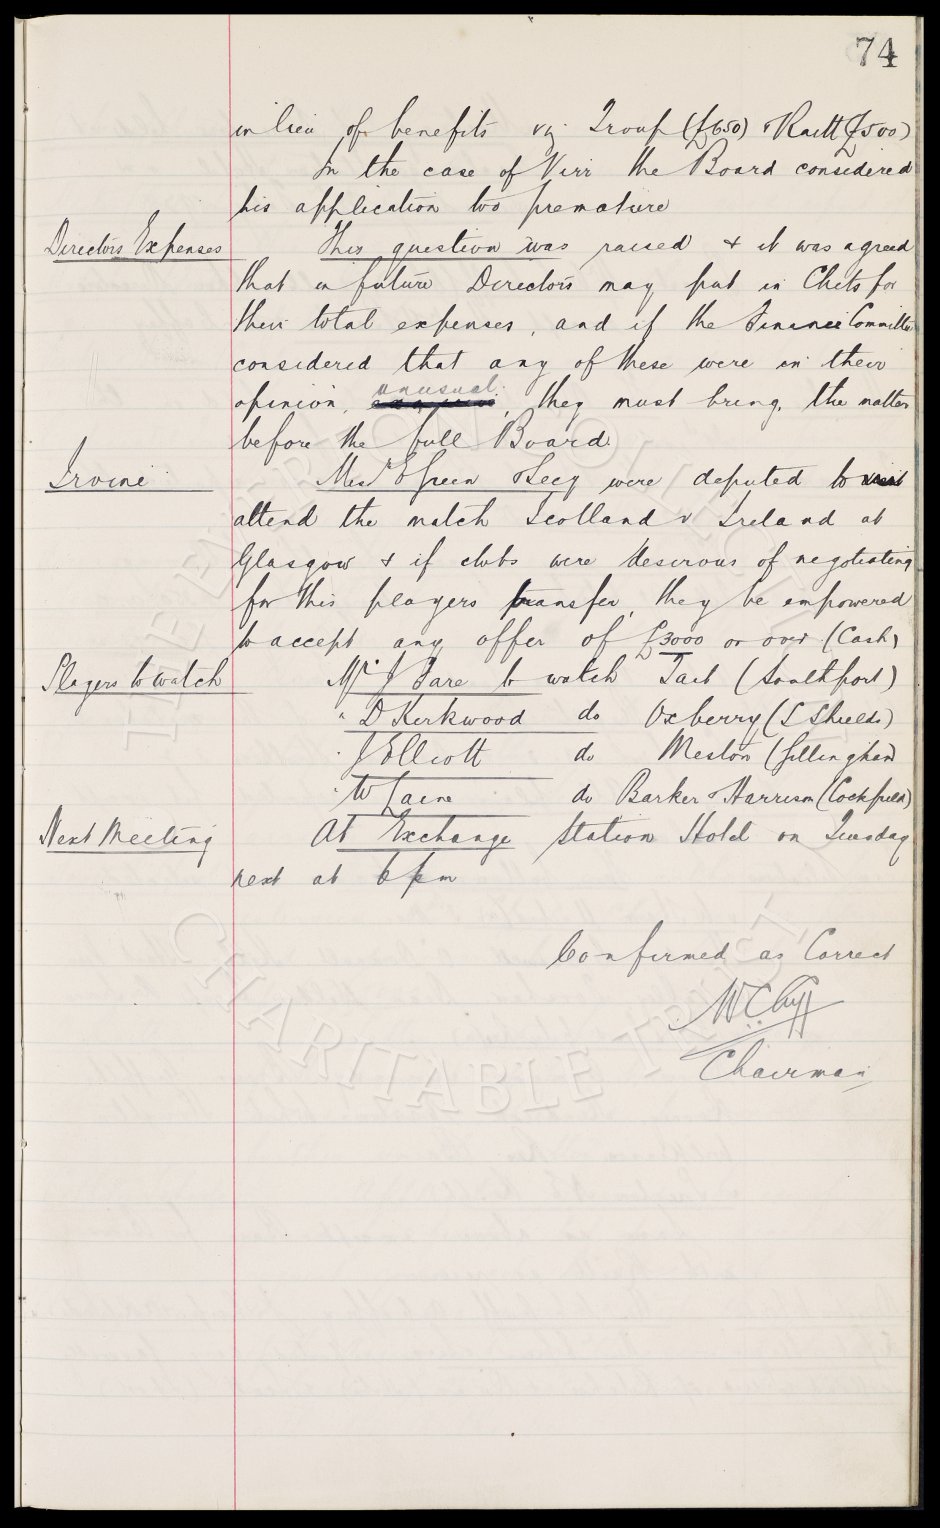 74
in lieu of benefits viz Troup (£650) & Raitt (£500)
In the case of Virr the Board considered
his application too premature
Directors Expenses This question was raised & it was agreed
that in future Directors may put in Chits for
their total expenses, and if the Finance Committee
considered that any of these were in their
opinion, unusual, they must bring, the matter
before the full Board
Irvine Messrs E Green & Seey were deputed to
attend the match Scotland v Ireland at
Glasgow & if clubs were desirous of negotiating
for this players transfer, they be empowered
to accept any offer of £3000 or over (Cash)
Players to watch Mr J Fare to watch Tait (Southport)
" D Kirkwood do Oxberry (S Shields)
" J Elliott do Meston (Gillingham)
" W do Barker & Harrison (Cockfield)
Next Meeting At Exchange Station Hotel on Tuesday
next at 6 pm
Confirmed as Correct
W.C. Cuff
Chairman
THE EVERTON COLLECTION
CHARITABLE TRUST